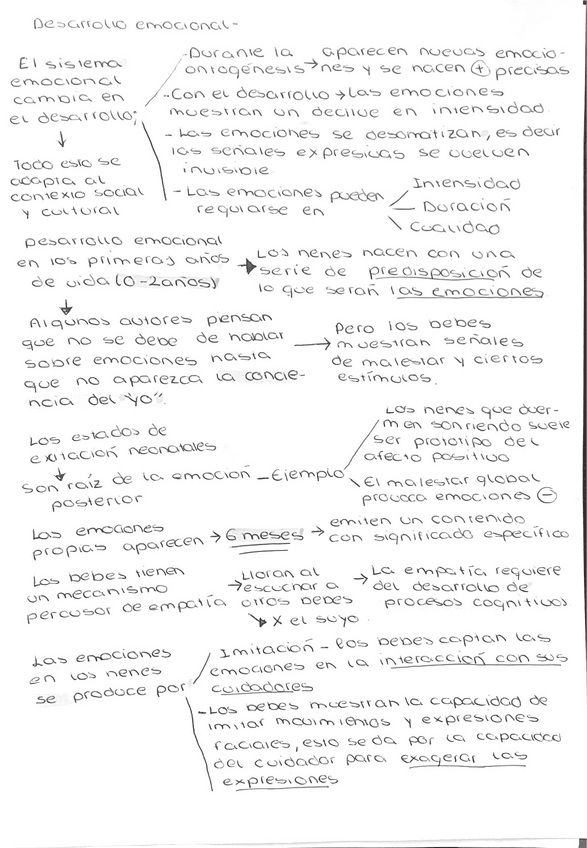 Desarrollo emocional-
El sistema
emocional
cambia en
el desarrollo;
↓
Todo esto se
adapta al
contexto social
y cultural
-Durante la ontogénesis → aparecen nuevas emocio-
nes y se hacen ⊕ precisas
-Con el desarrollo → las emociones
muestran un declive en intensidad.
- Las emociones se desomatizan, es decir
las señales expresivas se vuelven
invisible.
- Las emociones pueden
regularse en
Intensidad
Duración
Cualidad
Desarrollo emocional
en los primeros años
de vida (0-2años)
→ Los nenes nacen con una
serie de predisposición de
lo que serán las emociones
↓
Algunos autores piensan
que no se debe de hablar
sobre emociones hasta
que no aparezca la concie-
ncia del "yo".
→ Pero los bebes
muestran señales
de malestar y ciertos
estímulos.
Los estados de
exitación neonatales
↓
son raíz de la emoción - Ejemplo
posterior
Los nenes que duer-
men sonriendo suele
ser prototipo del
afecto positivo
El malestar global
provoca emociones ⊖
Las emociones
propias aparecen → 6 meses → emiten un contenido
con significado específico
Los bebes tienen
un mecanismo
percusor de empatía
→ Lloran al
escuchar a
otros bebes
↘ X el suyo.
→ La empatía requiere
del desarrollo de
procesos cognitivos
Las emociones
en los nenes
se produce por
Imitación - los bebes captan las
emociones en la interacción con sus
cuidadores
-Los bebes muestran la capacidad de
imitar movimientos y expresiones
faciales, esto se da por la capacidad
del cuidador para exagerar las
expresiones